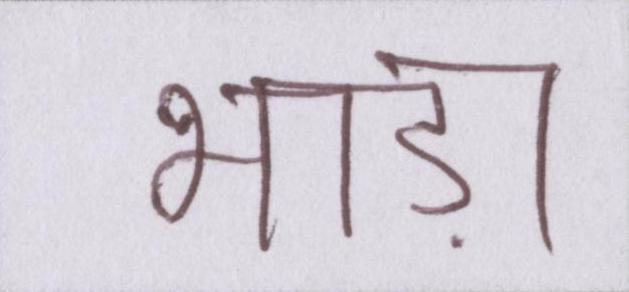 भाड़ा